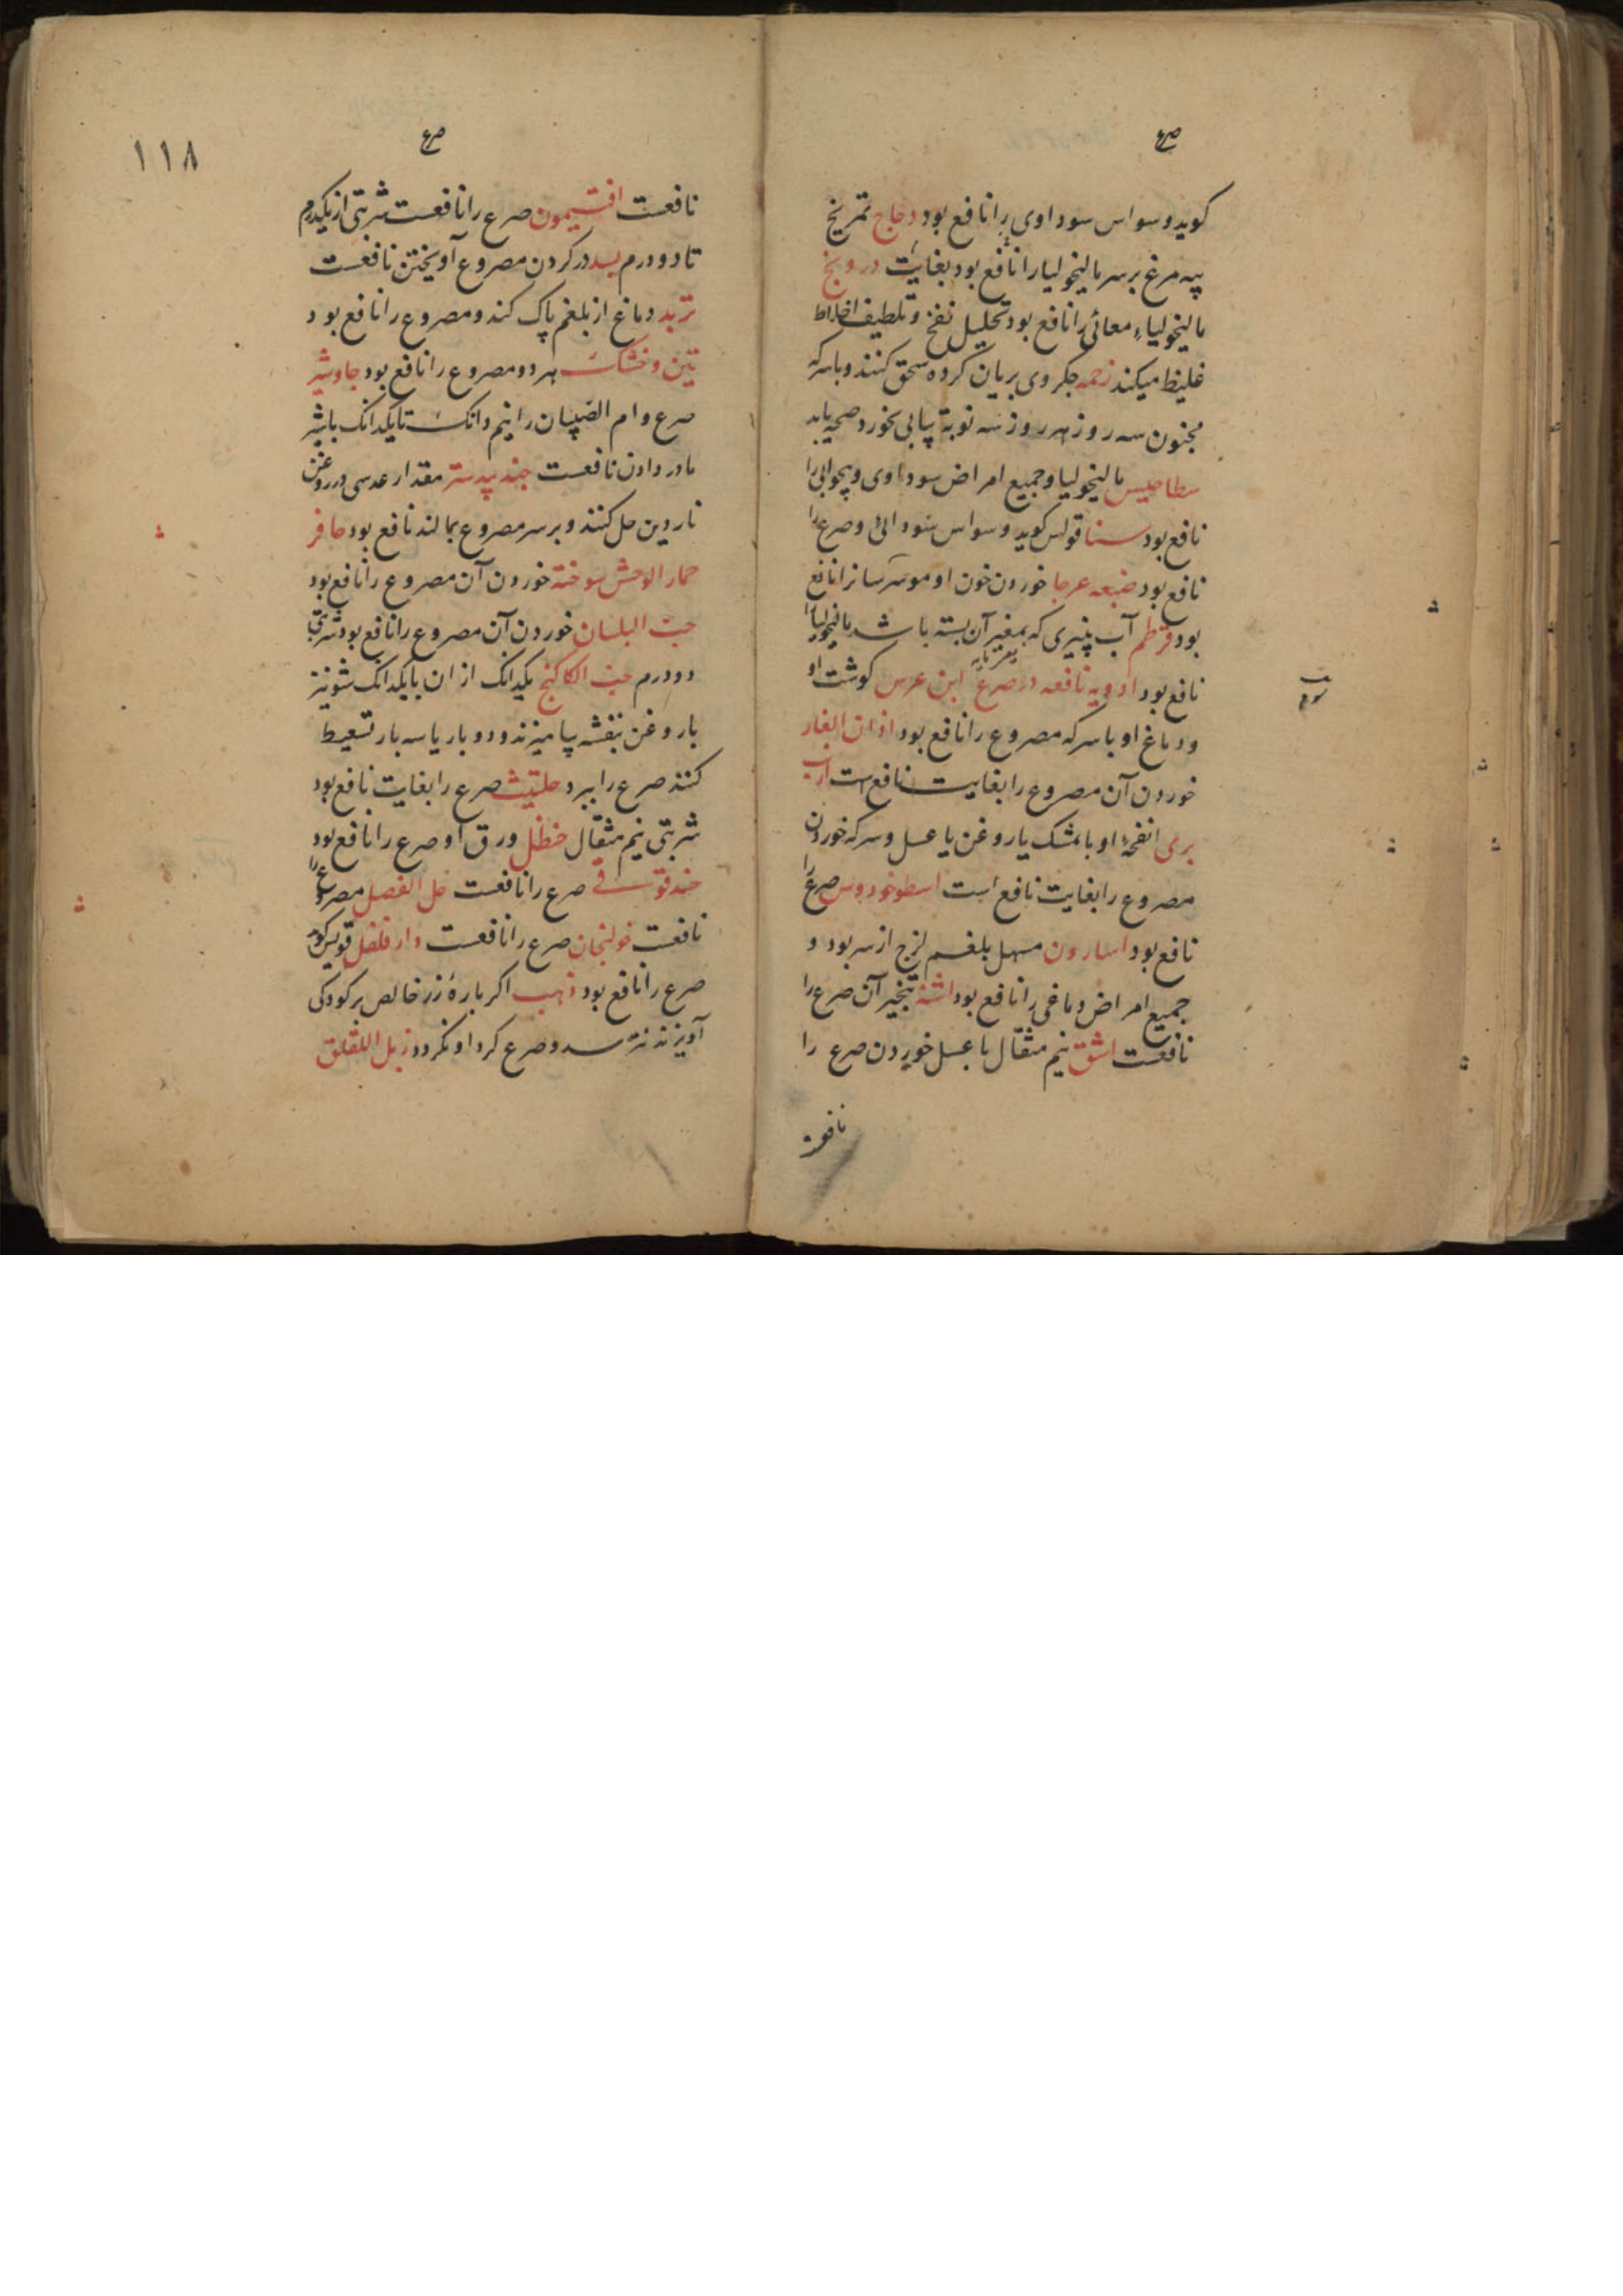 صرع
کوید وسواس سوداوی را نافع بود دجاج تمریخ
پیه مرغ بر سر مالیخولیا را نافع بود بغایت درونج
مالیخولیاء معائی را نافع بود تحلیل نفخ و تلطیف اخلاط
غلیظ میکند زحمه جکر وی بریان کرده سحق کنند و با سرکه
مجنون سه روز هر روز سه نوبة پیاپی بخورد صحه یابد
سطاخیس مالیخولیا و جمیع امراض سوداوی و بیخوابی را
نافع بود سنا قولس کوید وسواس سودائی و صرع را
نافع بود ضبعه عرجا خوردن خون او موسوسانرا نافع
بود قرطم آب پنیری که بمغز آن بسته باشد مالیخولیا را
نافع بود ادویه نافعه در صرع ابن عرس کوشت او
ودماغ او با سرکه مصروع را نافع بود اذان الفار
خوردن آن مصروع را بغایت نافع است ارنب
بری انفحۀ او با مشک یا روغن یا عسل و سرکه خوردن
مصروع را بغایت نافع است اسطوخودوس صرع را
نافع بود اسارون مسهل بلغم لزج از سر بود و
جمیع امراض دماغی را نافع بود اشنه تبخیر آن صرع را
نافعست اشق نیم مثقال با عسل خوردن صرع را
نافعست
صرع
۱۱۸
نافعست افتیمون صرع را نافعست شربتی از یکدرم
تا دو درم بسد در کردن مصروع آویختن نافعست
تربد دماغ از بلغم پاک کند و مصروع را نافع بود
تین و خشک هر دو مصروع را نافع بود جاوشیر
صرع و ام الصبیان را نیم دانک تا یکدانک با شیر
مادر دادن نافعست جند بیدستر مقدار عدسی در روغن
ناردین حل کنند و بر سر مصروع بمالند نافع بود حافر
حمار الوحش سوخته خوردن آن مصروع را نافع بود
حب البلسان خوردن آن مصروع را نافع بود شربتی
دو درم حب الکاکنج یکدانک از ان با یکدانک شونیز
با روغن بنفشه بیامیزند و دو بار یا سه بار تسعیط
کنند صرع را ببرد حلتیت صرع را بغایت نافع بود
شربتی نیم مثقال حنظل ورق او صرع را نافع بود
حندقوقی صرع را نافعست خل العنصل مصروع را
نافعست خولنجان صرع را نافعست دار فلفل قولس کوید
صرع را نافع بود ذهب اکر پارۀ زر خالص بر کودکی
آویزند نترسد و صرع کرد او نکردد زبل اللقلق